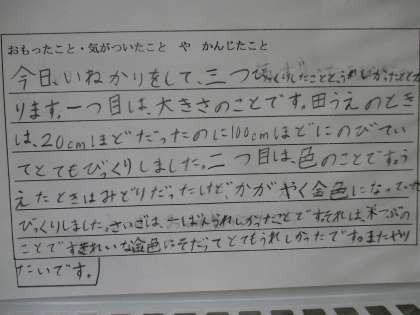 おもったこと・気がついたこと や かんじたこと
今日、いねかりをして、三つ くしたことと、うれしかったことと
ります。一つ目は、大きさのことです。田うえのとき
は、20cmほどだったのに100cmほどにのびてい
てとてもびっくりしました。二つ目は、色のことです。う
えたときはみどりだったけど、かがやく金色になっていて
びっくりしました。さいごは、一ばんうれしかったことです。それは、米つぶの
ことです。きれいな金色にそだってとてもうれしかったです。またやり
たいです。